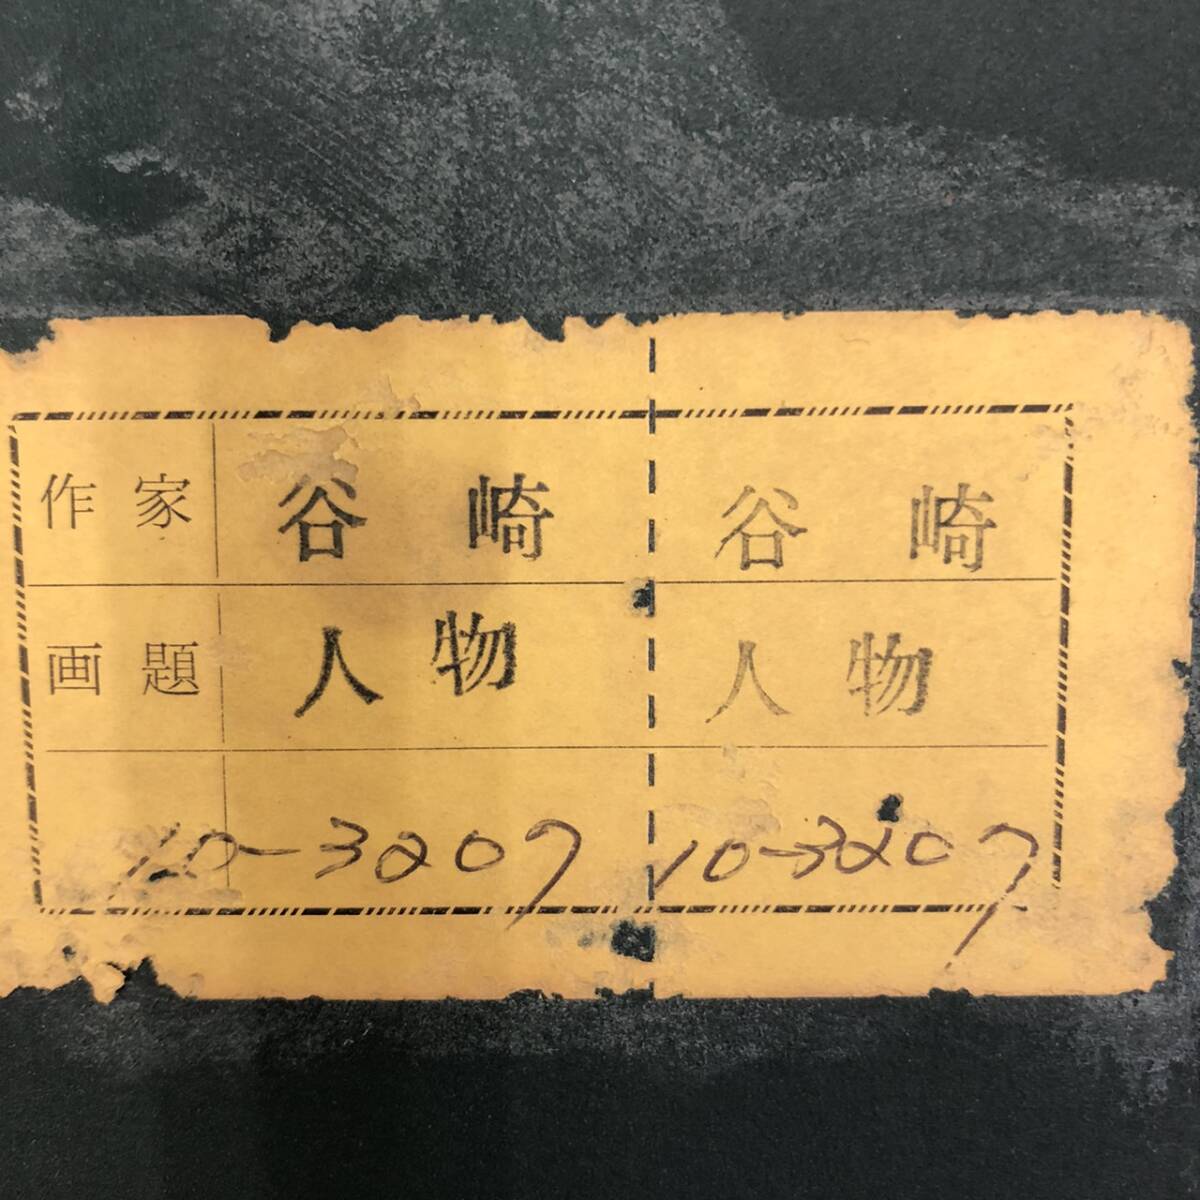 作家 谷崎 谷崎
画題 人物 人物
10-3207 10-3207